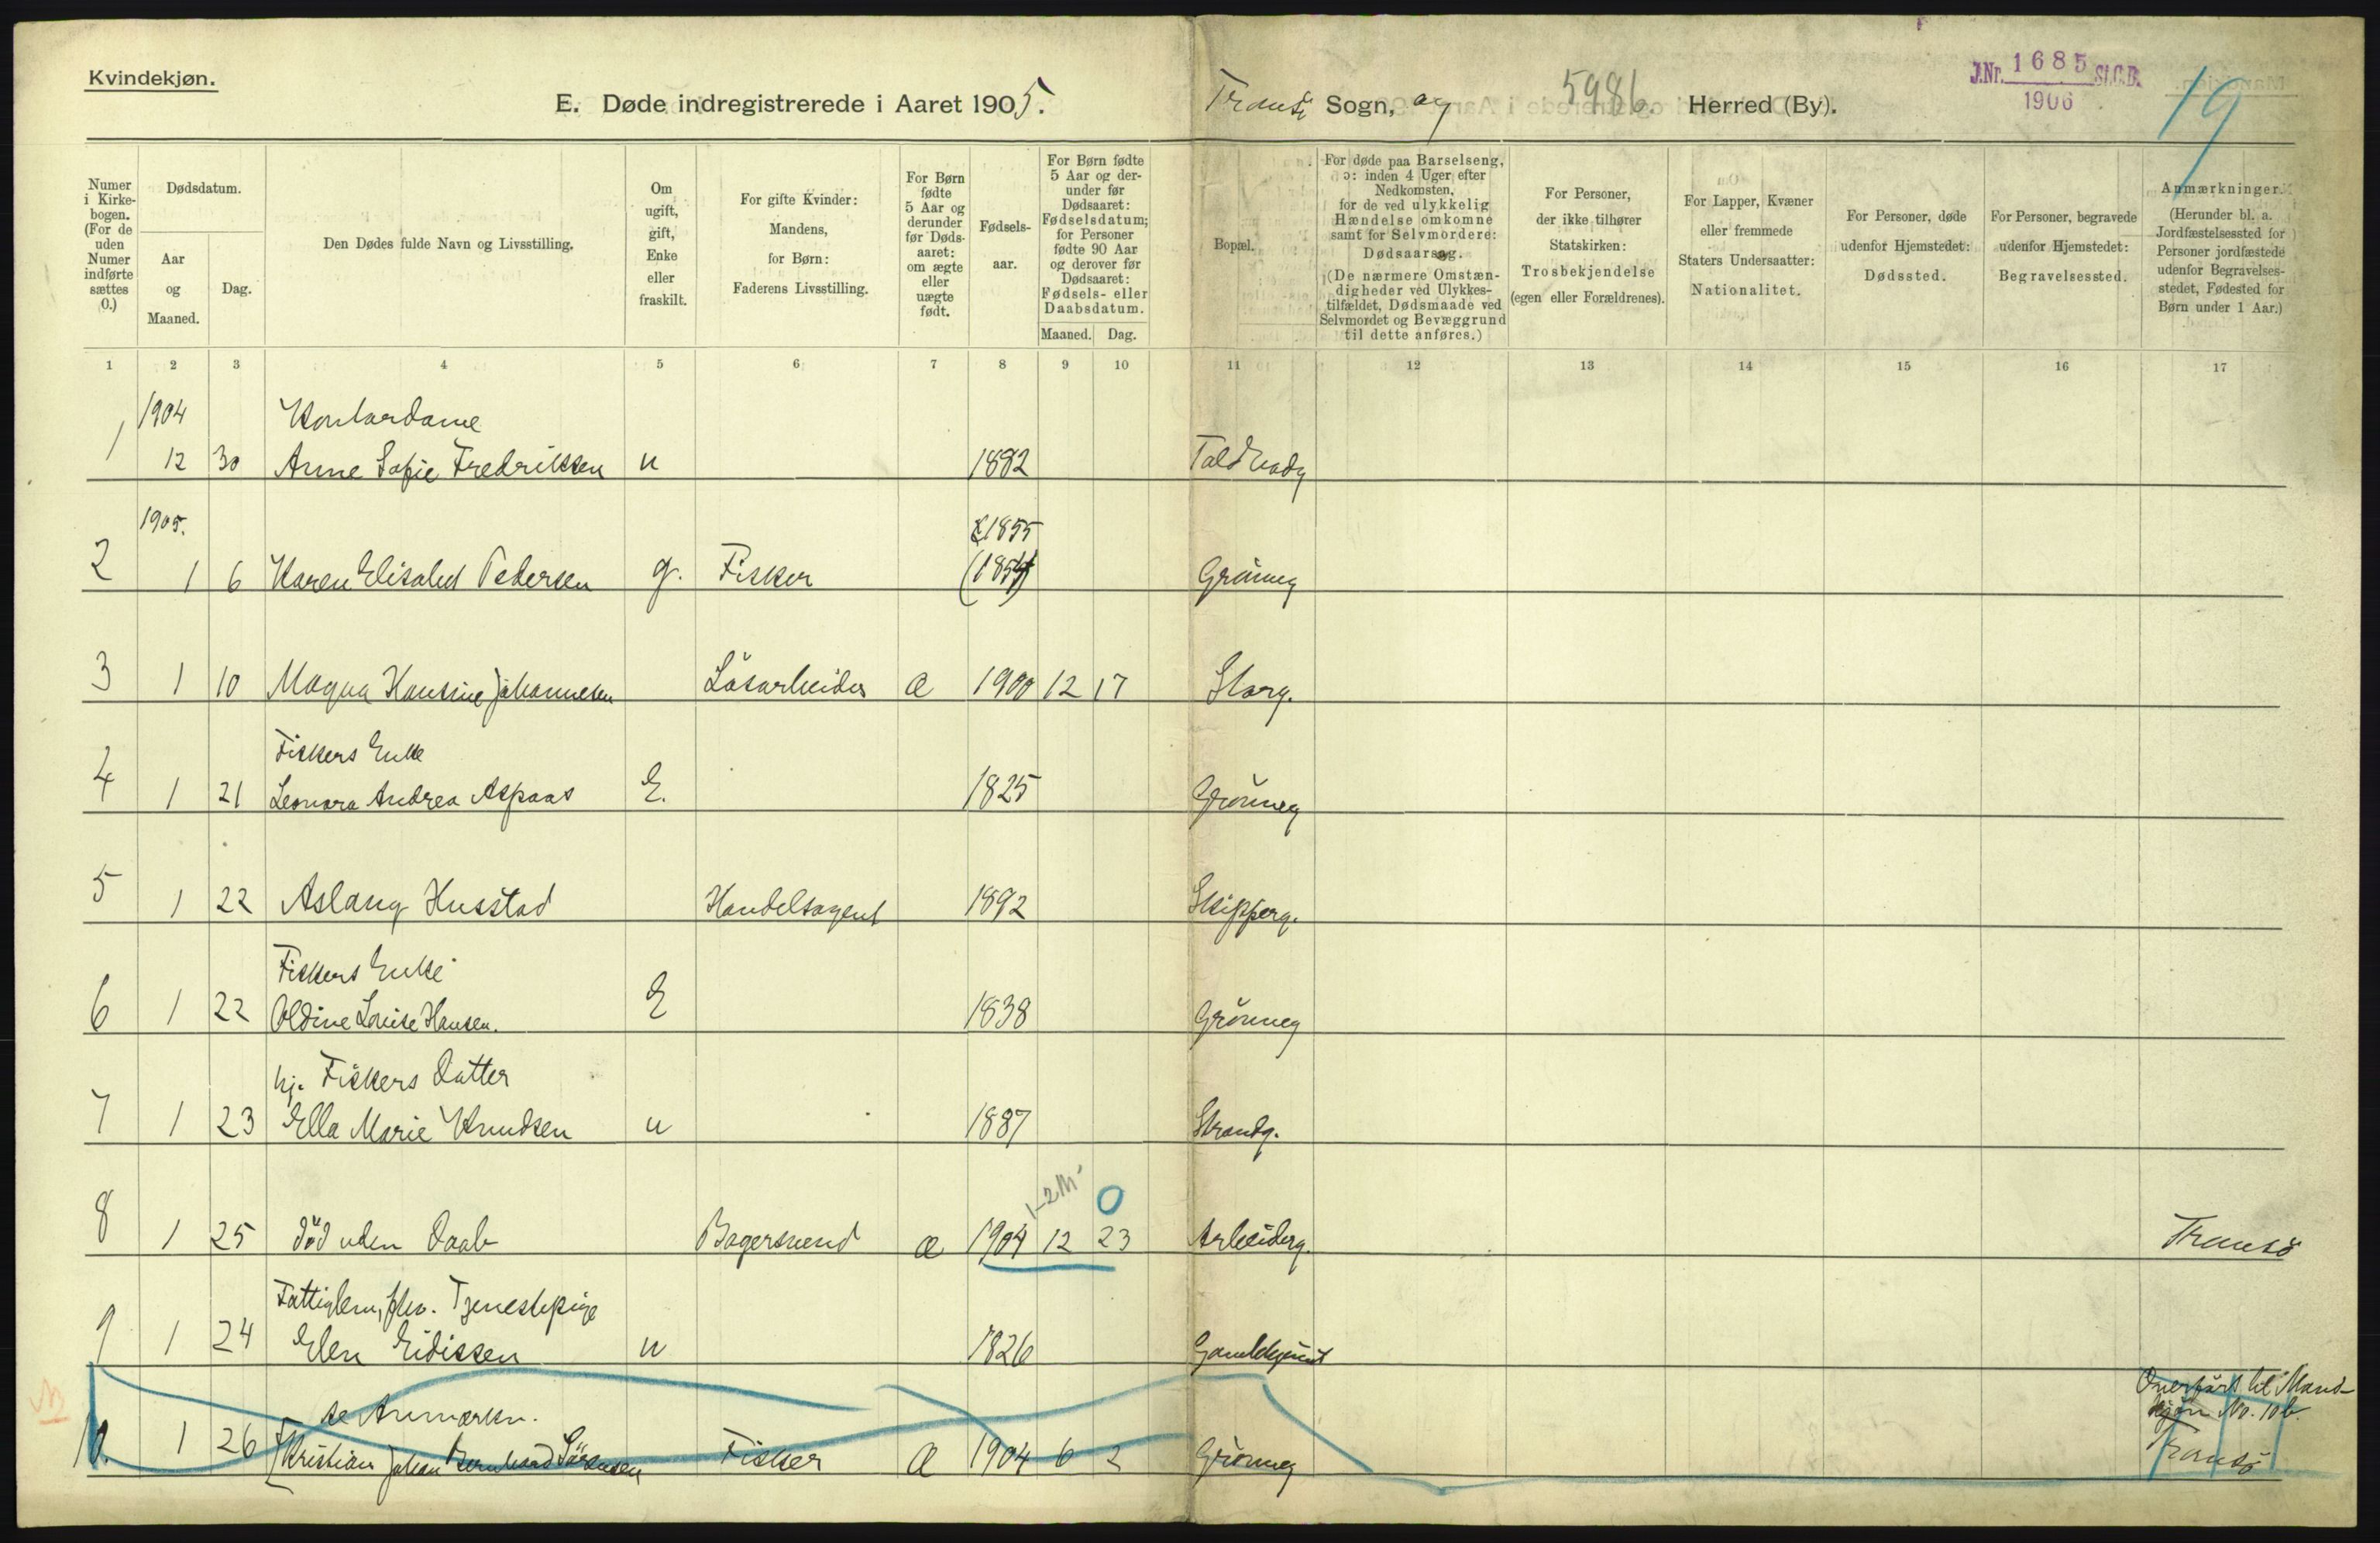 Kvindekjøn.
E. Døde indregistrerede i Aaret 1905.
Tromsø Sogn, og 5986. Herred (By).
J.Nr. 1685 St.C.B.
1906
19
Numer i Kirkebogen. (For de uden Numer indførte sættes 0.)
Dødsdatum.
Aar og Maaned.
Dag.
Den Dødes fulde Navn og Livsstilling.
Om ugift, gift, Enke eller fraskilt.
For gifte Kvinder: Mandens, for Børn: Faderens Livsstilling.
For Børn fødte 5 Aar og derunder før Dødsaaret: om ægte eller uægte født.
Fødselsaar.
For Børn fødte 5 Aar og derunder før Dødsaaret: Fødselsdatum; for Personer fødte 90 Aar og derover før Dødsaaret: Fødsels- eller Daabsdatum.
Maaned. Dag.
Bopæl.
For døde paa Barselseng, ɔ: inden 4 Uger efter Nedkomsten, for de ved ulykkelig Hændelse omkomne samt for Selvmordere: Dødsaarsag. (De nærmere Omstændigheder ved Ulykkestilfældet, Dødsmaade ved Selvmordet og Bevæggrund til dette anføres.)
For Personer, der ikke tilhører Statskirken: Trosbekjendelse (egen eller Forældrenes).
For Lapper, Kvæner eller fremmede Staters Undersaatter: Nationalitet.
For Personer, døde udenfor Hjemstedet: Dødssted.
For Personer, begravede udenfor Hjemstedet: Begravelsessted.
Anmærkninger. (Herunder bl. a. Jordfæstelsessted for Personer jordfæstede udenfor Begravelsesstedet, Fødested for Børn under 1 Aar.)
1 2 3 4 5 6 7 8 9 10 11 12 13 14 15 16 17
1904 Kontordame
1 12 30 Anne Sofie Fredriksen u 1882 Toldbodg
1905. 1855
2 1 6 Karen Elisabet Pedersen g. Fisker (1854) Grönneg
3 1 10 Magna Hansine Johannesen Løsarbeider Æ 1900 12 17 Storg.
Fiskers Enke
4 1 21 Leonora Andrea Aspaas E. 1825 Grönneg
5 1 22 Aslaug Husstad Handelsagent 1892 Skipperg.
Fiskers Enke
6 1 22 Oldine Louise Hansen. E 1838 Grönneg
hj. Fiskers Datter
7 1 23 Ella Marie Knudsen u 1887 Strandg.
1-2 M 0
8 1 25 död uden Daab Bagersvend æ 1904 12 23 Arbeiderg. Tromsö
Fattiglem, fhv. Tjenestepige
9 1 24 Elen Eidissen u 1826 Gamlehjemmet
se Anmærkn. Overført til Mandkjøn No. 10b.
10. 1 26 [Kristian Johan Bernhard Sörensen Fisker Æ 1904 6 2 Grönneg Tromsö